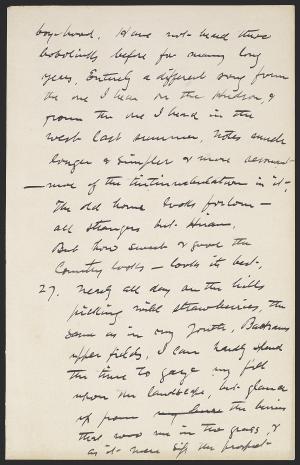 boyhood. Have not heard these
bobolinks before for many long
years. Entirely a different song from
the one I hear on the Hudson, &
from the one I heard in the
west last summer. Notes much
longer & simpler & more
— more of the tintinnabulation in it;
The old home looks forlorn —
all strangers but Hiram.
But how sweet & good the
Country looks — looks its best.
27. Nearly all day on the hills
picking wild strawberries, the
same as in my youth,
upper fields, I can hardly spend
the time to gaze my fill
upon the landscape, but glance
up from the berries
that woo me in the grass, &
as it were sip the prospect